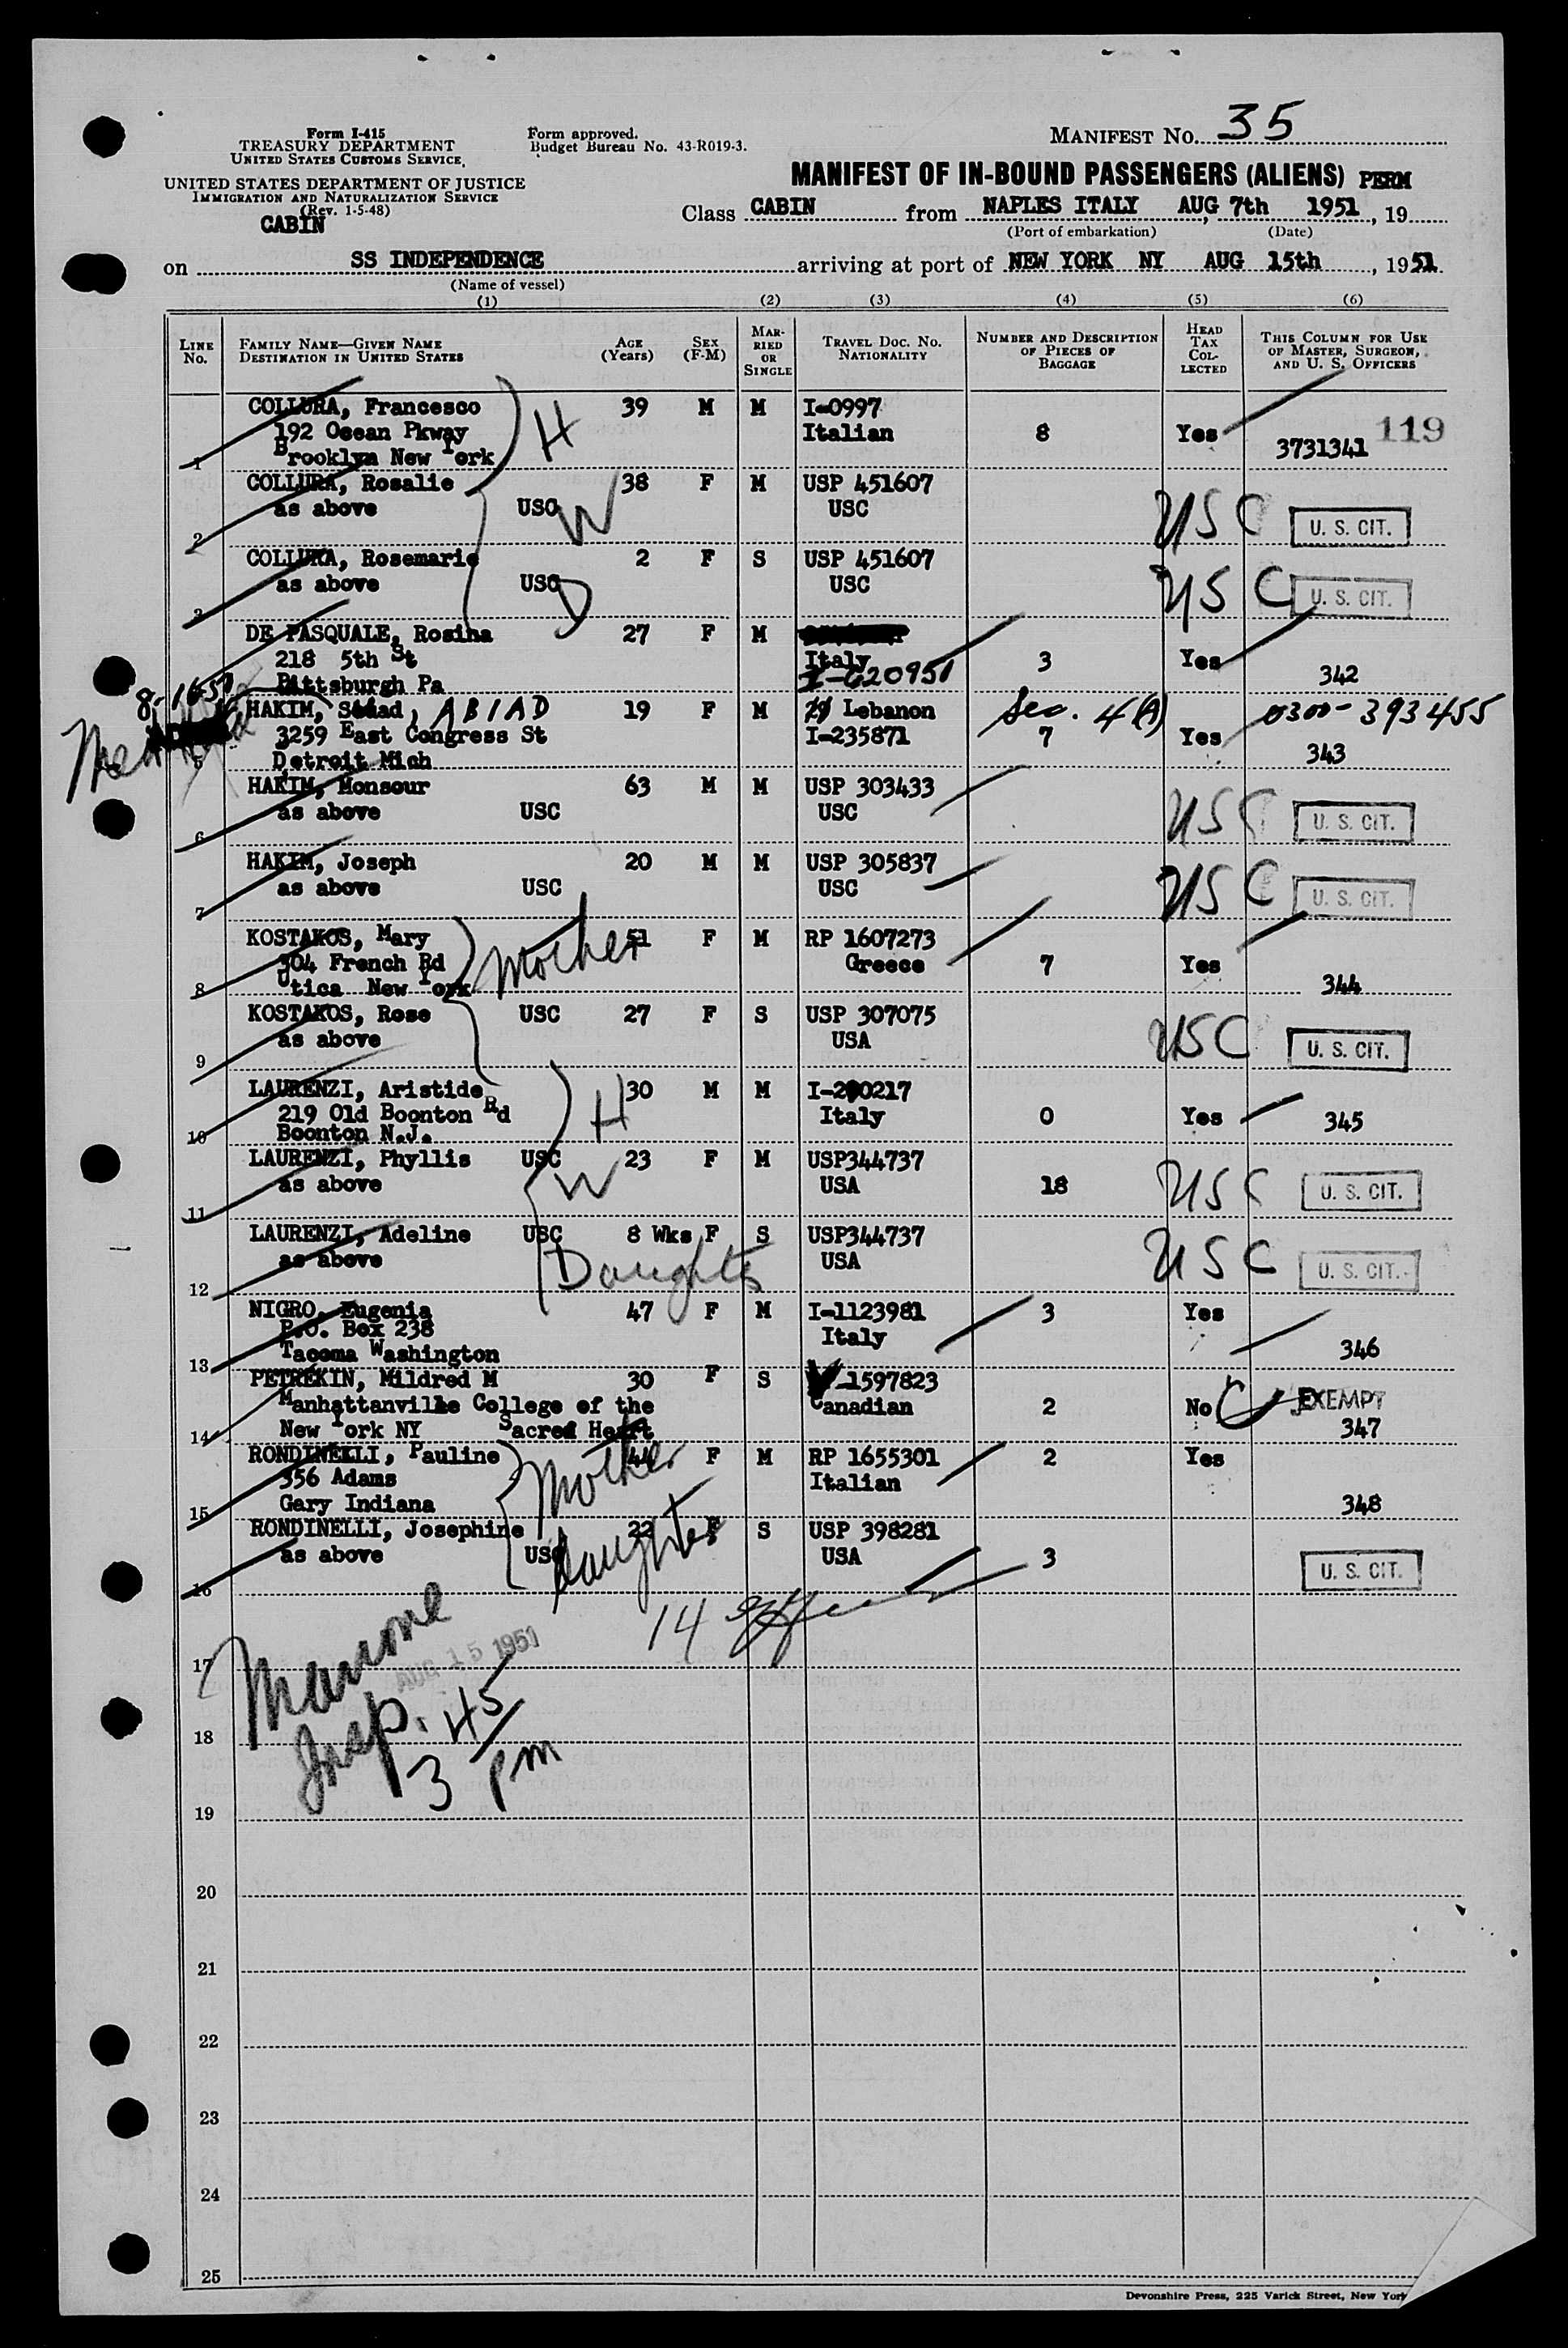 Form I-415
TREASURY DEPARTMENT
UNITED STATES CUSTOMS SERVICE,
UNITED STATES DEPARTMENT OF JUSTICE
IMMIGRATION AND NATURALIZATION SERVICE
(Rev. 1-5-48)
CABIN
Form approved.
Budget Bureau No. 43-R019-3.
MANIFEST NO. 35
MANIFEST OF IN-BOUND PASSENGERS (ALIENS) PERM
Class CABIN from NAPLES ITALY AUG 7th 1951, 19
(Port of embarkation) (Date)
on SS INDEPENDENCE arriving at port of NEW YORK NY AUG 15th, 1951
(Name of vessel)
(1) (2) (3) (4) (5) (6)
LINE NO. FAMILY NAME—GIVEN NAME DESTINATION IN UNITED STATES AGE (Years) SEX (F-M) MARRIED OR SINGLE TRAVEL DOC. NO. NATIONALITY NUMBER AND DESCRIPTION OF PIECES OF BAGGAGE HEAD TAX COLLECTED THIS COLUMN FOR USE OF MASTER, SURGEON, AND U. S. OFFICERS
COLLURA, Francesco H 39 M M I-0997
192 Ocean Pkway Italian 8 Yes 119
1 Brooklyn New York 3731341
COLLURA, Rosalie W 38 F M USP 451607
as above USC USC USC U. S. CIT.
2
COLLURA, Rosemarie 2 F S USP 451607
as above USC D USC USC U. S. CIT.
3
DE PASQUALE, Rosina 27 F M
218 5th St Italy 3 Yes 342
Pittsburgh Pa I-620951
8-16-51 HAKIM, Souad, ABIAD 19 F M Lebanon Sec. 4(A) 0300-393455
3259 East Congress St I-235871 7 Yes 343
5 Detroit Mich
HAKIM, Monsour 63 M M USP 303433
as above USC USC USC U. S. CIT.
6
HAKIM, Joseph 20 M M USP 305837
as above USC USC USC U. S. CIT.
7
KOSTAKOS, Mary Mother 51 F M RP 1607273
304 French Rd Greece 7 Yes
8 Utica New York 344
KOSTAKOS, Rose USC 27 F S USP 307075
as above USA USC U. S. CIT.
9
LAURENZI, Aristide H 30 M M I-200217
219 Old Boonton Rd Italy 0 Yes 345
10 Boonton N.J.
LAURENZI, Phyllis USC W 23 F M USP344737
as above USA 18 USC U. S. CIT.
11
LAURENZI, Adeline USC 8 Wks F S USP344737
as above Daughter USA USC U. S. CIT.
12
NIGRO, Eugenia 47 F M I-1123981 3 Yes
P.O. Box 238 Italy
13 Tacoma Washington 346
PETREKIN, Mildred M 30 F S V-1597823
Manhattanville College of the Canadian 2 No EXEMPT
14 New York NY Sacred Heart 347
RONDINELLI, Pauline Mother 44 F M RP 1655301 2 Yes
356 Adams Italian
15 Gary Indiana 348
RONDINELLI, Josephine 22 F S USP 398281
as above USC Daughter USA 3 U. S. CIT.
16
14
17 AUG 15 1951
Insp.
18 3 45/pm
19
20
21
22
23
24
25
Devonshire Press, 225 Varick Street, New York